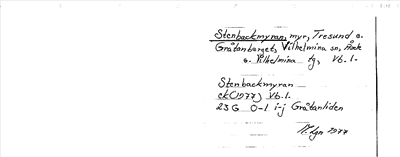 Stenbackmyran, myr, Tresund o.
Gråtanberget, Vilhelmina sn, Åsele
o. Vilhelmina tg, Vb. l.
Stenbackmyran
ek(1977) Vb. l.
23 G 0-1 i-j Gråtanliden
1977